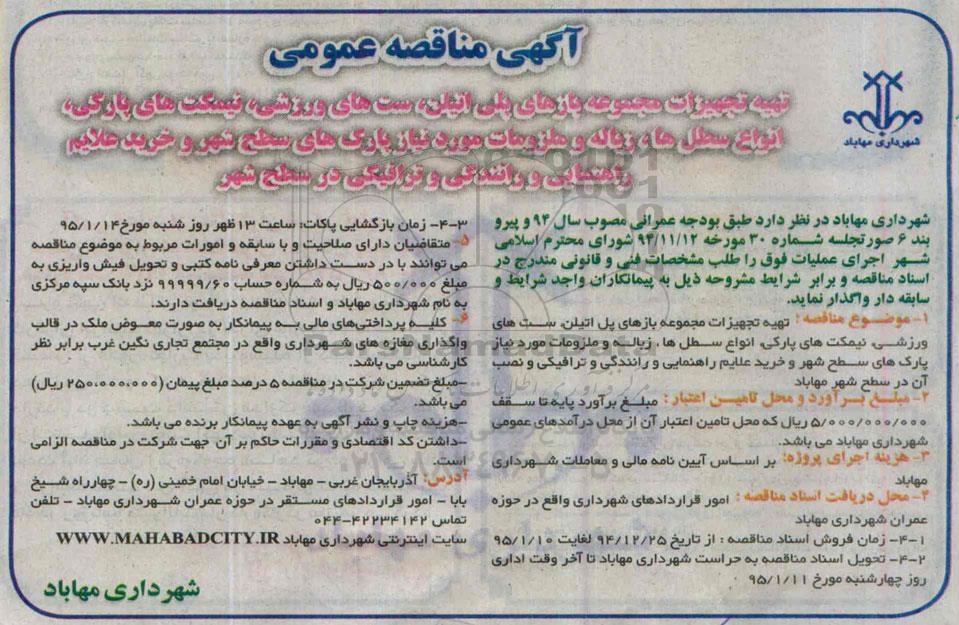 آگهی مناقصه عمومی
تهیه تجهیزات مجموعه بازهای پلی اتیلن، ست های ورزشی، نیمکت های پارکی،
انواع سطل ها، زباله و ملزومات مورد نیاز پارک های سطح شهر و خرید علایم
راهنمایی و رانندگی و ترافیکی در سطح شهر
شهرداری مهاباد
شهرداری مهاباد در نظر دارد طبق بودجه عمرانی مصوب سال ۹۴ و پیرو
بند ۶ صورتجلسه شماره ۳۰ مورخه ۹۴/۱۱/۱۲ شورای محترم اسلامی
شهر اجرای عملیات فوق را طلب مشخصات فنی و قانونی مندرج در
اسناد مناقصه و برابر شرایط مشروحه ذیل به پیمانکاران واجد شرایط و
سابقه دار واگذار نماید.
۱- موضوع مناقصه: تهیه تجهیزات مجموعه بازهای پل اتیلن، ست های
ورزشی، نیمکت های پارکی، انواع سطل ها، زباله و ملزومات مورد نیاز
پارک های سطح شهر و خرید علایم راهنمایی و رانندگی و ترافیکی و نصب
آن در سطح شهر مهاباد
۲- مبلغ برآورد و محل تامین اعتبار: مبلغ برآورد پایه تا سقف
۵/۰۰۰/۰۰۰/۰۰۰ ریال که محل تامین اعتبار آن از محل درآمدهای عمومی
شهرداری مهاباد می باشد.
۳- هزینه اجرای پروژه: بر اساس آیین نامه مالی و معاملات شهرداری
مهاباد
۴- محل دریافت اسناد مناقصه: امور قراردادهای شهرداری واقع در حوزه
عمران شهرداری مهاباد
۴-۱- زمان فروش اسناد مناقصه: از تاریخ ۹۴/۱۲/۲۵ لغایت ۹۵/۱/۱۰
۴-۲- تحویل اسناد مناقصه به حراست شهرداری مهاباد تا آخر وقت اداری
روز چهارشنبه مورخ ۹۵/۱/۱۱
۴-۳- زمان بازگشایی پاکات: ساعت ۱۳ ظهر روز شنبه مورخ ۹۵/۱/۱۴
۵- متقاضیان دارای صلاحیت و با سابقه و امورات مربوط به موضوع مناقصه
می توانند با در دست داشتن معرفی نامه کتبی و تحویل فیش واریزی به
مبلغ ۵۰۰/۰۰۰ ریال به شماره حساب ۹۹۹۹۹/۶۰ نزد بانک سپه مرکزی
به نام شهرداری مهاباد و اسناد مناقصه دریافت دارند.
۶- کلیه پرداختی‌های مالی به پیمانکار به صورت معوض ملک در قالب
واگذاری مغازه های شهرداری واقع در مجتمع تجاری نگین غرب برابر نظر
کارشناسی می باشد.
-مبلغ تضمین شرکت در مناقصه ۵ درصد مبلغ پیمان (۲۵۰،۰۰۰،۰۰۰ ریال)
می باشد.
-هزینه چاپ و نشر آگهی به عهده پیمانکار برنده می باشد.
-داشتن کد اقتصادی و مقررات حاکم بر آن جهت شرکت در مناقصه الزامی
است.
آدرس: آذربایجان غربی - مهاباد - خیابان امام خمینی (ره) - چهارراه شیخ
بابا - امور قراردادهای مستقر در حوزه عمران شهرداری مهاباد - تلفن
تماس ۴۲۲۳۴۱۴۲-۰۴۴
سایت اینترنتی شهرداری مهاباد WWW.MAHABADCITY.IR
شهرداری مهاباد